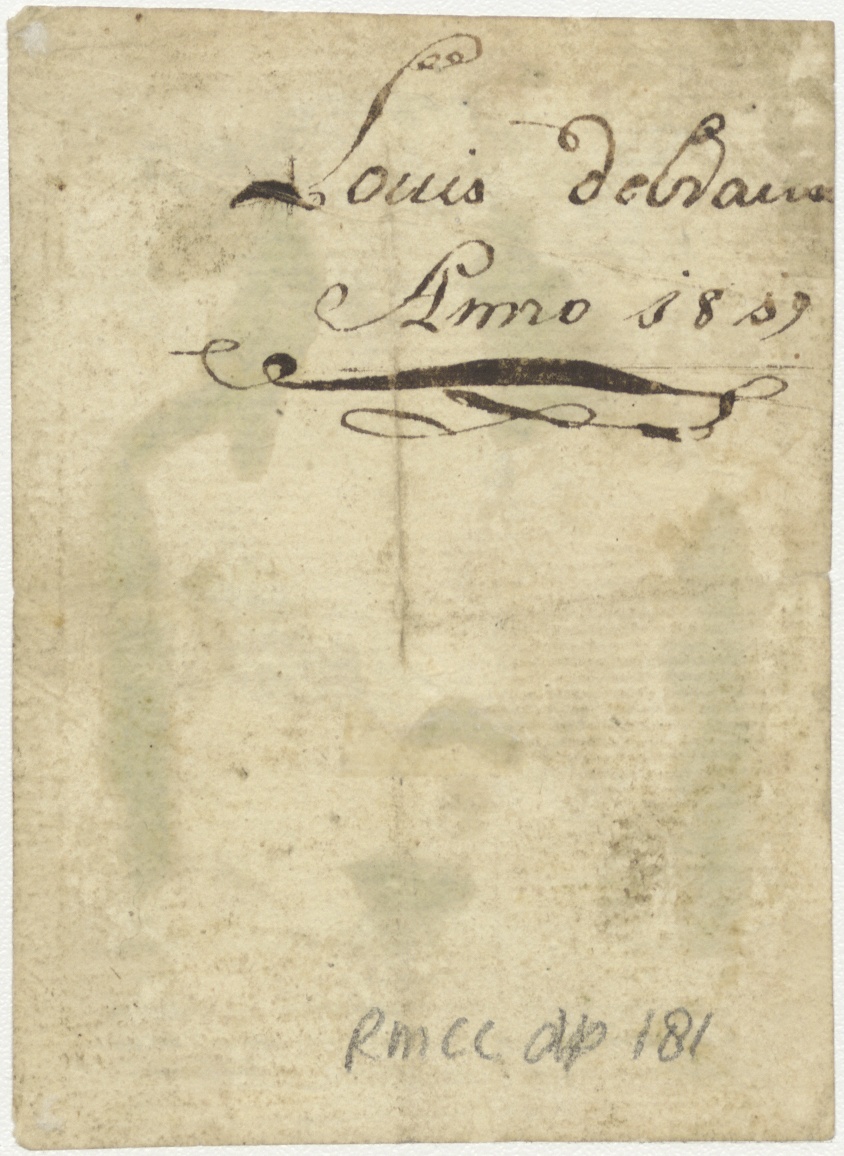 Louis
Anno 1819
Rmcc dp 181